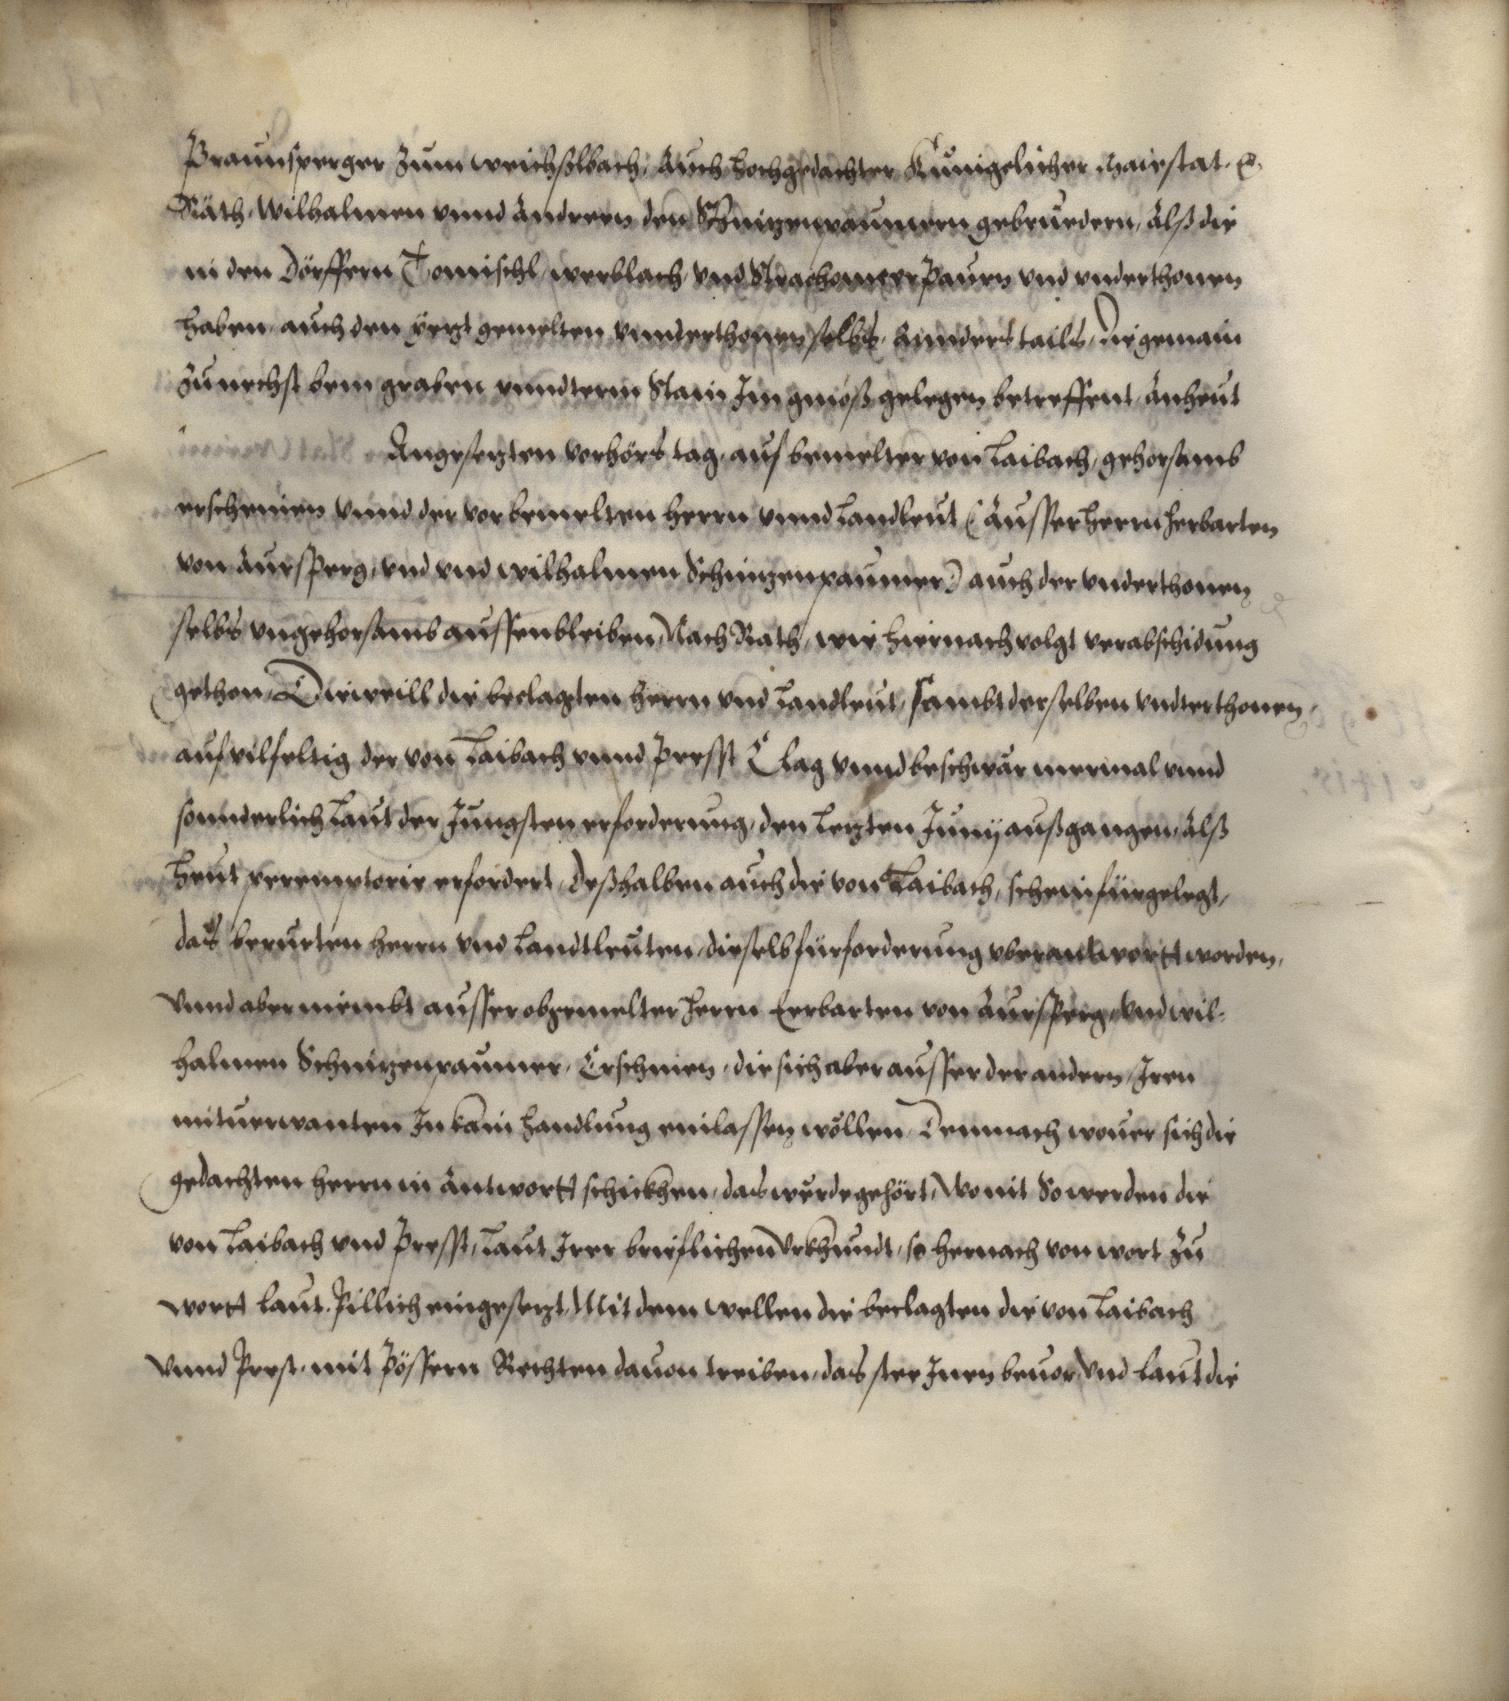 Praunsperger zum Weichslbach, auch hochgedachter Künigelicher Maiestat. &.
Räth, Wilhalmen vnnd Andreen den Schnizenpaumern gebruedern, Alß die
in den Dörffern Tomischl, Werblach, vnd Strachomer Paurn vnd vnderthonen
haben, auch den yezt gemelten vnnderthonen selbs, annders tails, die gemain
zunechst bem graben vnndterm Stain Im gmöß gelegen betreffent, Anheut
Angesezten verhörs tag, auf bemelter von Laibach, gehorsamb
erscheinen vnnd der vorbemelten herrn vnnd Landleut (Ausser herrn herbarten
von Aursperg, vnd vnd Wilhalmen Schnizenpaumer) auch der vnderthonen
selbs vngehorsamb aussenbleiben, Nach Rath, wie hiernach volgt verabschidung
gethon, Dieweill die beclagten herrn vnd Landleut, sambt derselben vndterthonen,
auf vilfeltig der von Laibach vnnd Presst Clag vnnd beschwär mermal vnnd
sonnderlich Laut der Jungsten erforderung, den Lezten Junij außgangen, Alß
heut peremptorie erfordert, Deßhalben auch die von Laibach, schein fürgelegt,
das berurten herrn vnd Landtleuten, dieselb fürforderung vberantwortt worden,
vnnd aber niembt ausser obgemelter herrn herbarten von Aursperg, vnd Wil-
halmen Schnizenpaumer, Erschinen, die sich aber ausser der andern, Iren
mituerwanten In kain handlung einlassen wöllen, Demnach wouer sich die
gedachten herrn in Antwortt schickhen, das werde gehört, Wo nit So werden die
von Laibach vnd Presst, Laut Irer brieflichen Vrkhundt, so hernach von wort zu
wortt laut, Pillich eingesezt, Mit dem wellen die beclagten die von Laibach
vnnd Prest, mit Pössern Rechten dauon treiben, das stee Inen beuor, Vnd Laut die